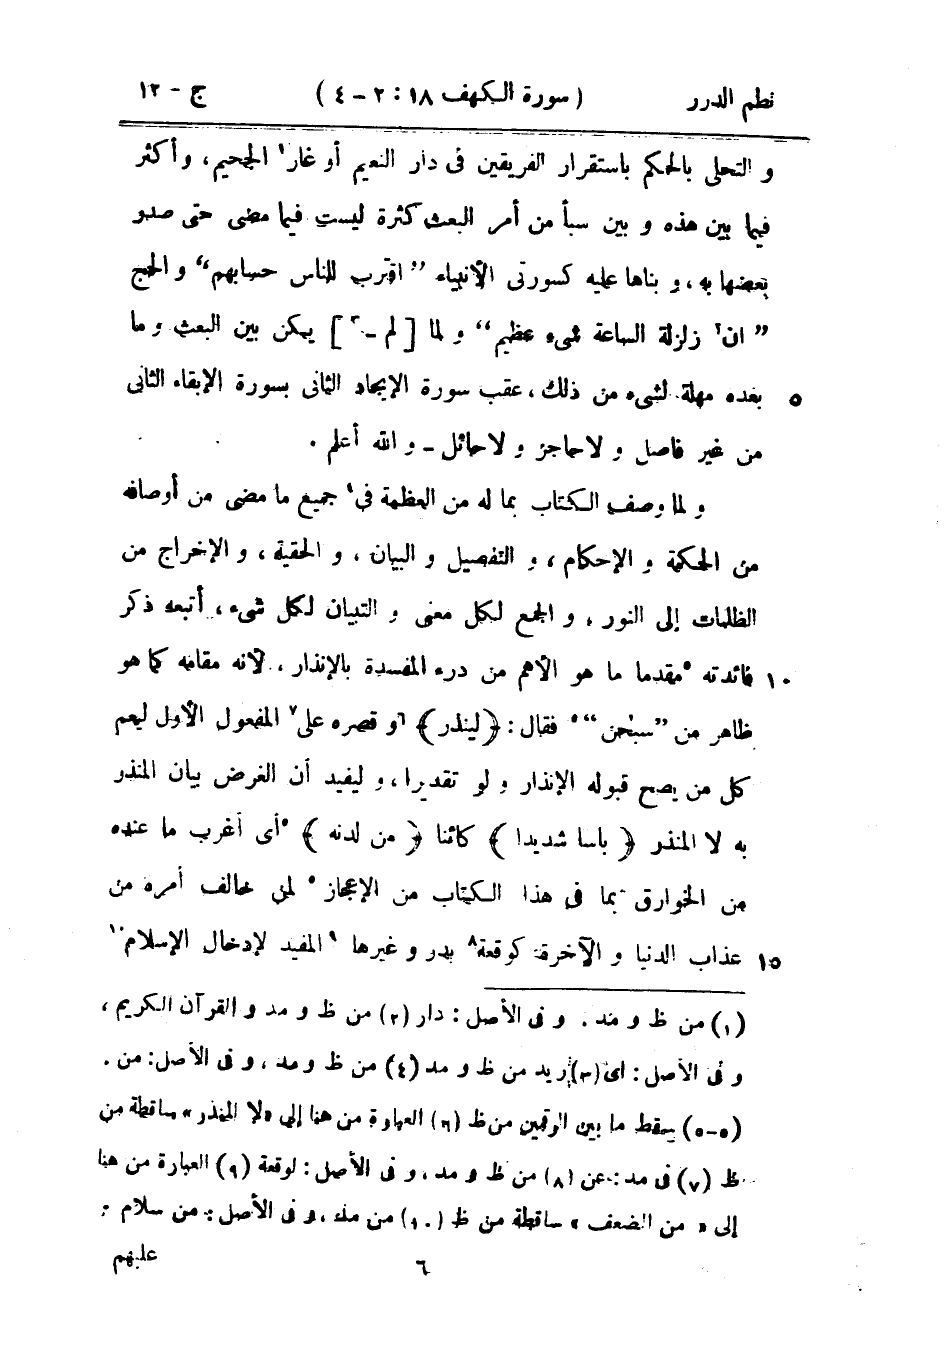 نظم الدرر ( سورة الكهف ١٨ : ٢ - ٤ ) ج - ١٢
و التحلى بالحكم باستقرار الفريقين فى دار النعيم أو غار١ الجحيم ، و أكثر
فيما بين هذه و بين سبأ من أمر البعث كثرة ليست فيما مضى حتى صدر
بعضها به ، و بناها عليه كسورتى الأنبياء ” اقترب للناس حسابهم “ و الحج
” ان٢ زلزلة الساعة شىء عظيم “ و لما [ لم -٣ ] يمكن بين البعث و ما
٥ بعده مهلة لشىء من ذلك ، عقب سورة الإيجاد الثانى بسورة الإبقاء الثانى
من غير فاصل و لا حاجز و لا حائل - و الله أعلم .
و لما وصف الكتاب بما له من العظمة فى٤ جميع ما مضى من أوصافه
من الحكمة و الإحكام ، و التفصيل و البيان ، و الحقية ، و الإخراج من
الظلمات إلى النور ، و الجمع لكل معنى و التبيان لكل شىء ، أتبعه ذكر
١٠ فائدته ٥مقدما ما هو الأهم من درء المفسدة بالإنذار ، لأنه مقامه كما هو
ظاهر من ” سبحٰن “ ٥ فقال : ﴿ لينذر ﴾ ٦و قصره على٧ المفعول الأول ليعم
كل من يصح قبوله الإنذار و لو تقديرا ، و ليفيد أن الغرض بيان المنذر
به لا المنذر ﴿ باسا شديدا ﴾ كائنا ﴿ من لدنه ﴾ ٥أى أغرب ما عنده
من الخوارق بما فى هذا الكتاب من الإعجاز٥ لمن خالف أمره من
١٥ عذاب الدنيا و الآخرة كوقعة٨ بدر و غيرها ٩المفيد لإدخال الإسلام١٠
(١) من ظ و مد . و فى الأصل : دار (٢) من ظ و مد و القرآن الكريم ،
و فى الأصل : اى (٣) زيد من ظ و مد (٤) من ظ و مد ، و فى الأصل : من .
(٥-٥) سقط ما بين الرقمين من ظ (٦) العبارة من هنا إلى « لا المنذر » ساقطة من
ظ (٧) فى مد : عن (٨) من ظ و مد ، و فى الأصل : لوقعة (٩) العبارة من هنا
إلى « من الضعف » ساقطة من ظ (١٠) من مد ، و فى الأصل : من سلام .
٦ عليهم